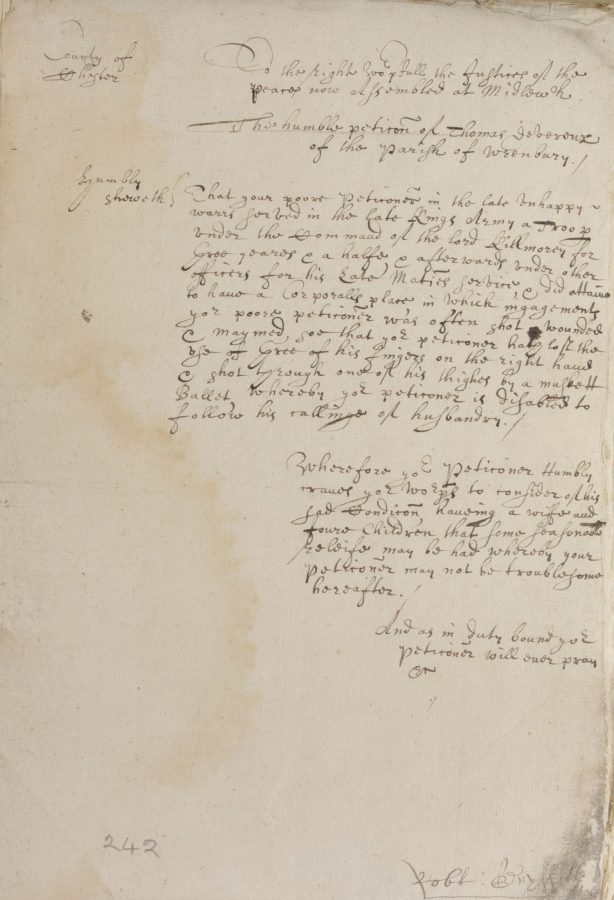 County of
Chester
To the right wor:pfull the Justices of the
peace now Assembled at Midlewch
The humble peticon of Thomas Devereux
of the Parish of Wrenbury./
Humbly
sheweth
That your poore Peticoner in the late vnhappy
warrs served in the late Kings Army a Troop
vnder the Command of the lord Killmorey for
three yeares & a halfe & afterwards vnder other
officers for his Late Maties service, & did attaine
to have a Corporalls place, in which ingagements
yor poore peticoner was often shot wounded
& maymed, soe that yor peticoner hath lost the
vse of three of his fingers on the right hand
& shot through one of his thighes by a muskett
Bullet whereby yor peticoner is disabled to
follow his callinge of husbandry./
Wherefore yor Peticoner Humbly
craves yor Worps to consider of his
sad Condicon haveing a wiffe and
foure Children that some seasonable
releife may be had whereby your
Peticoner may not be troublesome
hereafter./
And as in duty bound yor
peticoner will ever pray
&c
242
Robt: